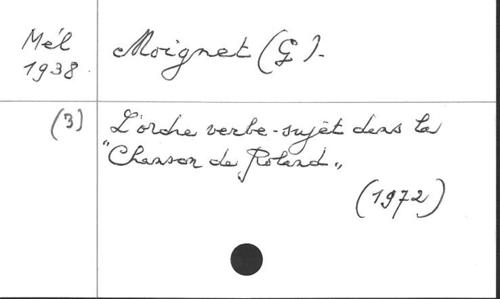 Mél
1938.
Moignet (G).
(3)
L'ordre verbe-sujet dans la
"Chanson de Roland"
(1972)